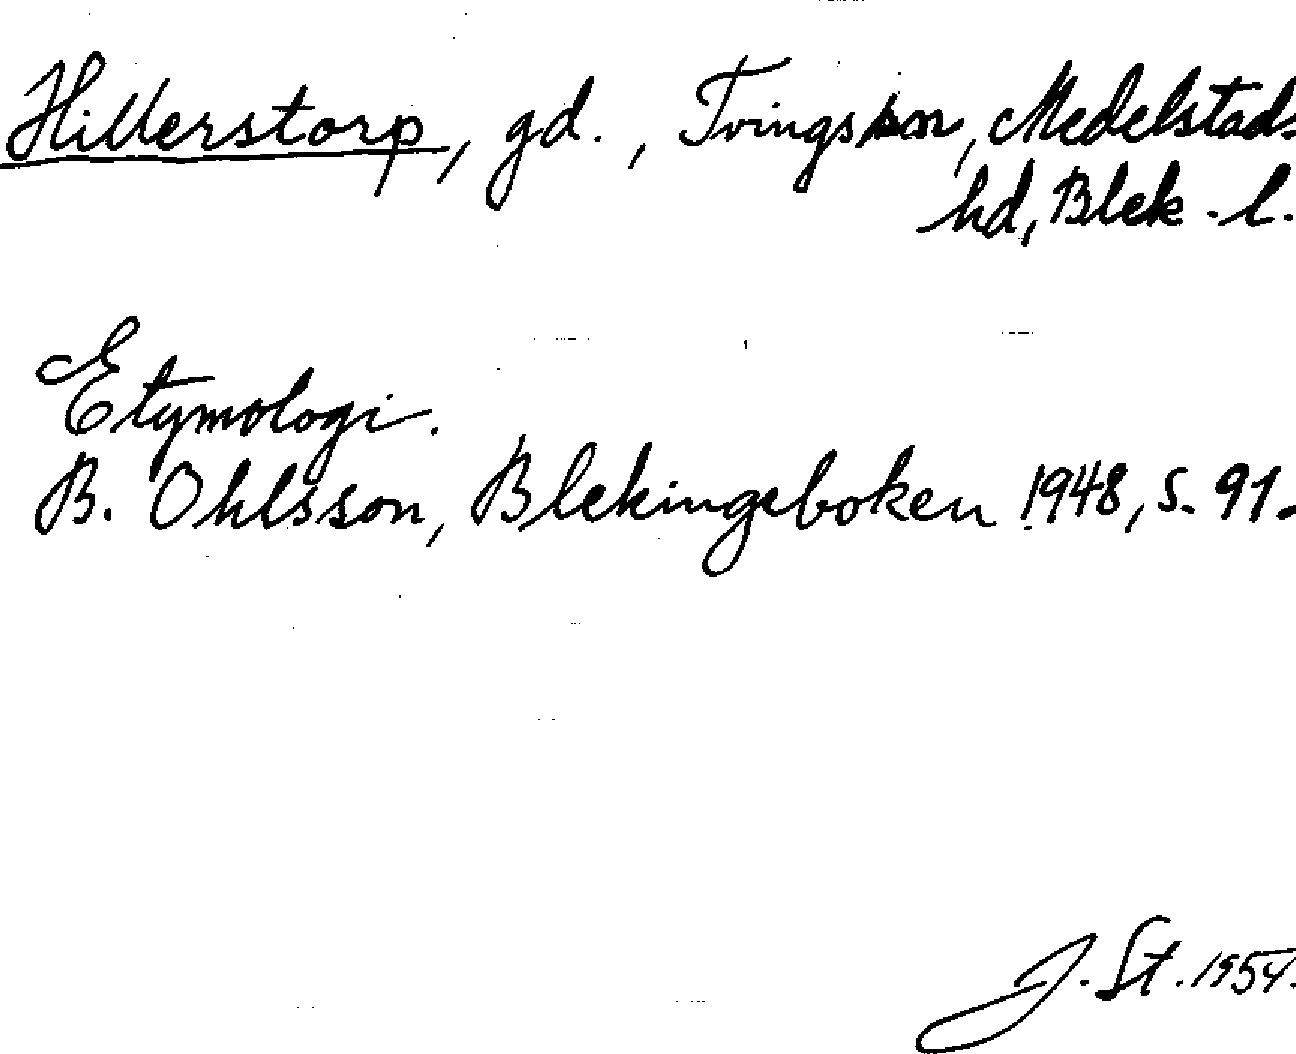 Hillerstorp, gd., Tvings sn, Medelstads
hd, Blek. l.
Etymologi.
B. Ohlsson, Blekingeboken 1948, s. 91.
J. St. 1954.